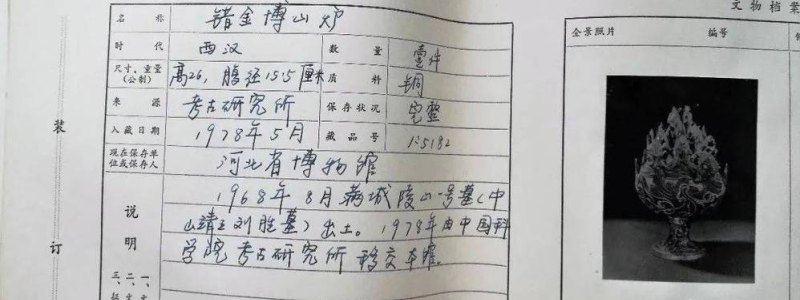 文物档案
名称 错金博山炉
全景照片 编号
时代 西汉 数量 壹件
尺寸、重量(公制) 高26，腹径15.5厘米 质料 铜
来源 考古研究所 保存状况 完整
入藏日期 1978年5月 藏品号 1:5182
现在保存单位或保存人 河北省博物馆
装
订
说明
1968年8月满城陵山一号墓(中
山靖王刘胜墓)出土。1978年由中国科
学院考古研究所移交本馆。
三、二、一、